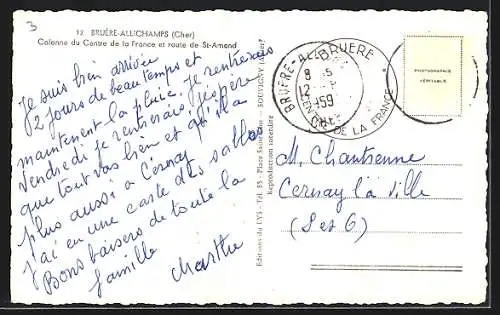 3
12 BRUÈRE-ALLICHAMPS (Cher)
Colonne du Centre de la France et route de St-Amand
Je suis bien arrivée
2 jours de beau temps et
maintenant la pluie. je rentrerais
Vendredi je rentrerais j'espère
que tout vas bien et qu'il a
plus aussi a Cernay
j'ai eu une carte des
Bons baisers de toute la
famille
Marthe
Editions du LYS - Tél. 55 - Place
Reproduction interdite
BRUÈRE-AL
CHER
12
1959
BRUERE
CENTRE DE LA FRANCE
PHOTOGRAPHIE
VÉRITABLE
M. Chantrenne
Cernay la ville
(S et O)